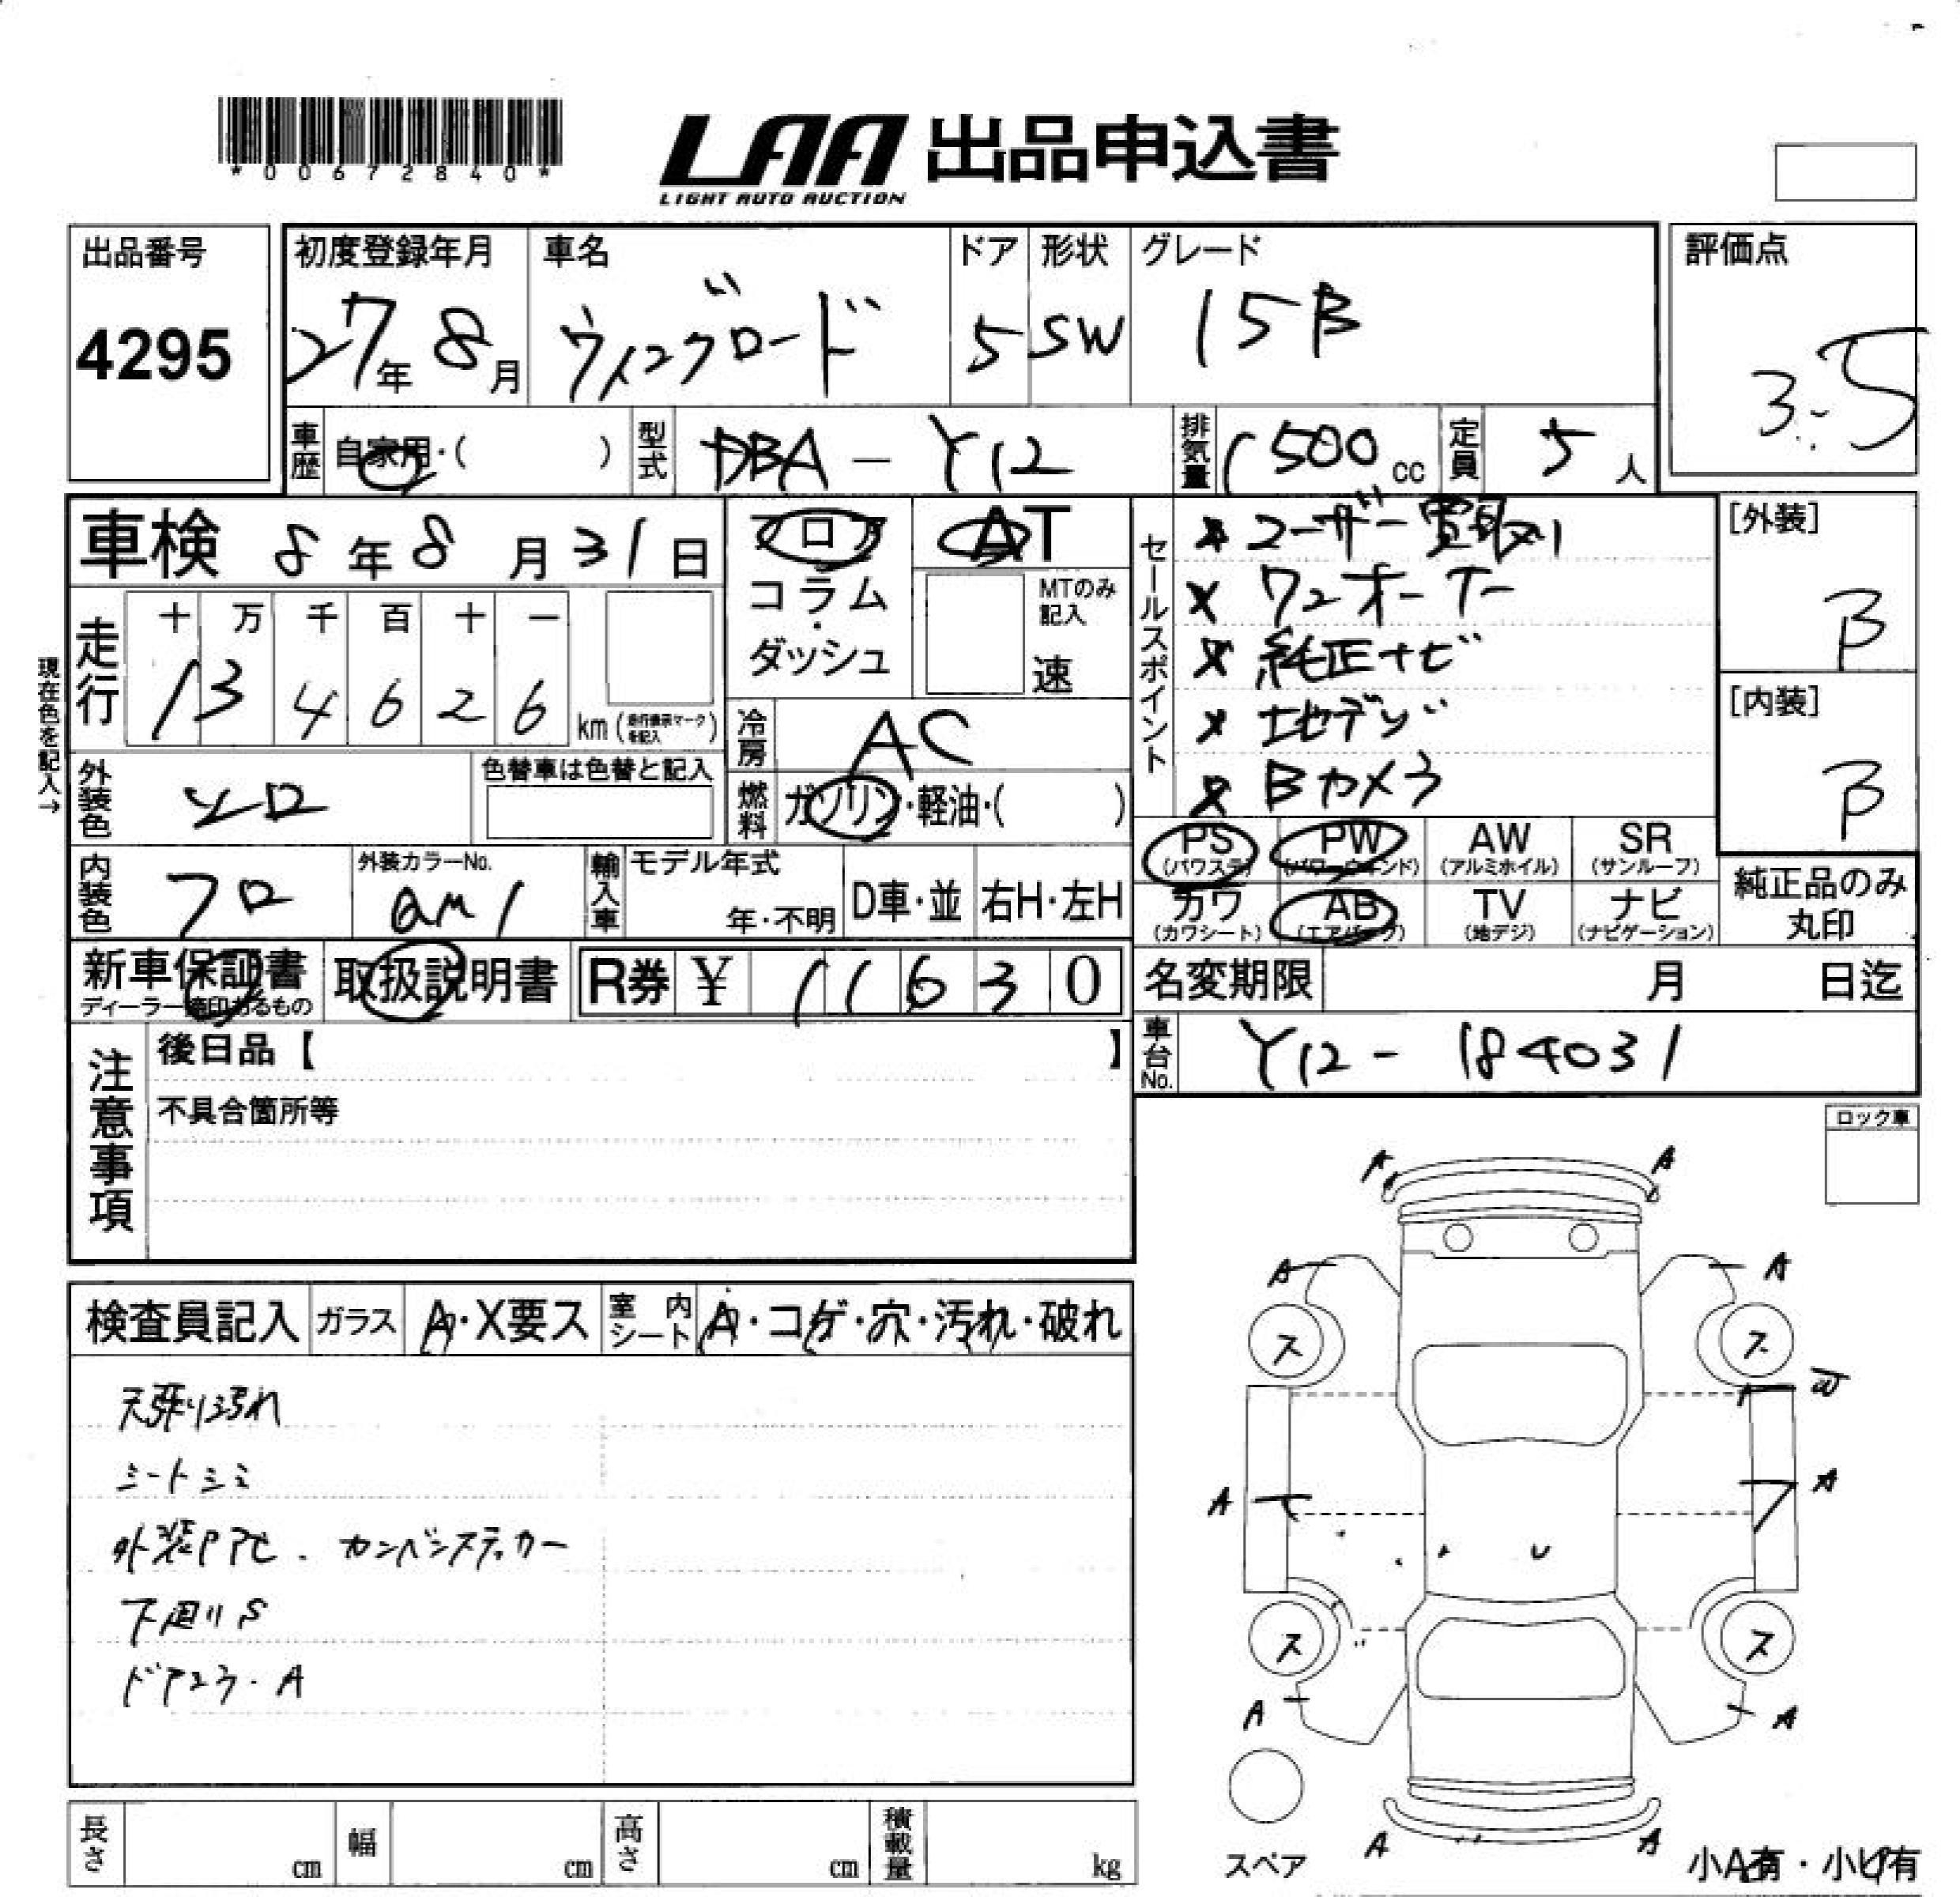 *00672840*
LAA 出品申込書
LIGHT AUTO AUCTION
出品番号
4295
初度登録年月
27年8月
車名
ウイングロード
ドア
5
形状
SW
グレード
15B
評価点
3.5
車歴
自家用・( )
型式
DBA-Y12
排気量
1500cc
定員
5人
車検 8年8月31日
フロア
コラム
ダッシュ
AT
MTのみ記入
速
セールスポイント
ユーザー買取り
ワンオーナー
純正ナビ
地デジ
Bカメラ
[外装]
B
[内装]
B
現在色を記入→
走行
十 万 千 百 十 一
1 3 4 6 2 6 km
冷房
AC
燃料
ガソリン・軽油・( )
外装色
シロ
色替車は色替と記入
内装色
クロ
外装カラーNo.
QM1
輸入車
モデル年式
年・不明
D車・並
右H・左H
PS (パワステ)
PW (パワーウインド)
AW (アルミホイル)
SR (サンルーフ)
カワ (カワシート)
AB (エアバッグ)
TV (地デジ)
ナビ (ナビゲーション)
純正品のみ丸印
新車保証書
ディーラー捺印あるもの
取扱説明書
R券 ¥ 11630
名変期限 月 日迄
車台No.
Y12-184031
注意事項
後日品【 】
不具合箇所等
ロック車
検査員記入
ガラス
A・X要ス
室内シート
A・コゲ・穴・汚れ・破れ
天張り汚れ
シートシミ
カンバンステッカー
下廻りS
A
A A
A A
ス ス
A A
ス ス
A A
A A
スペア
小A有・小U有
長さ cm
幅 cm
高さ cm
積載量 kg